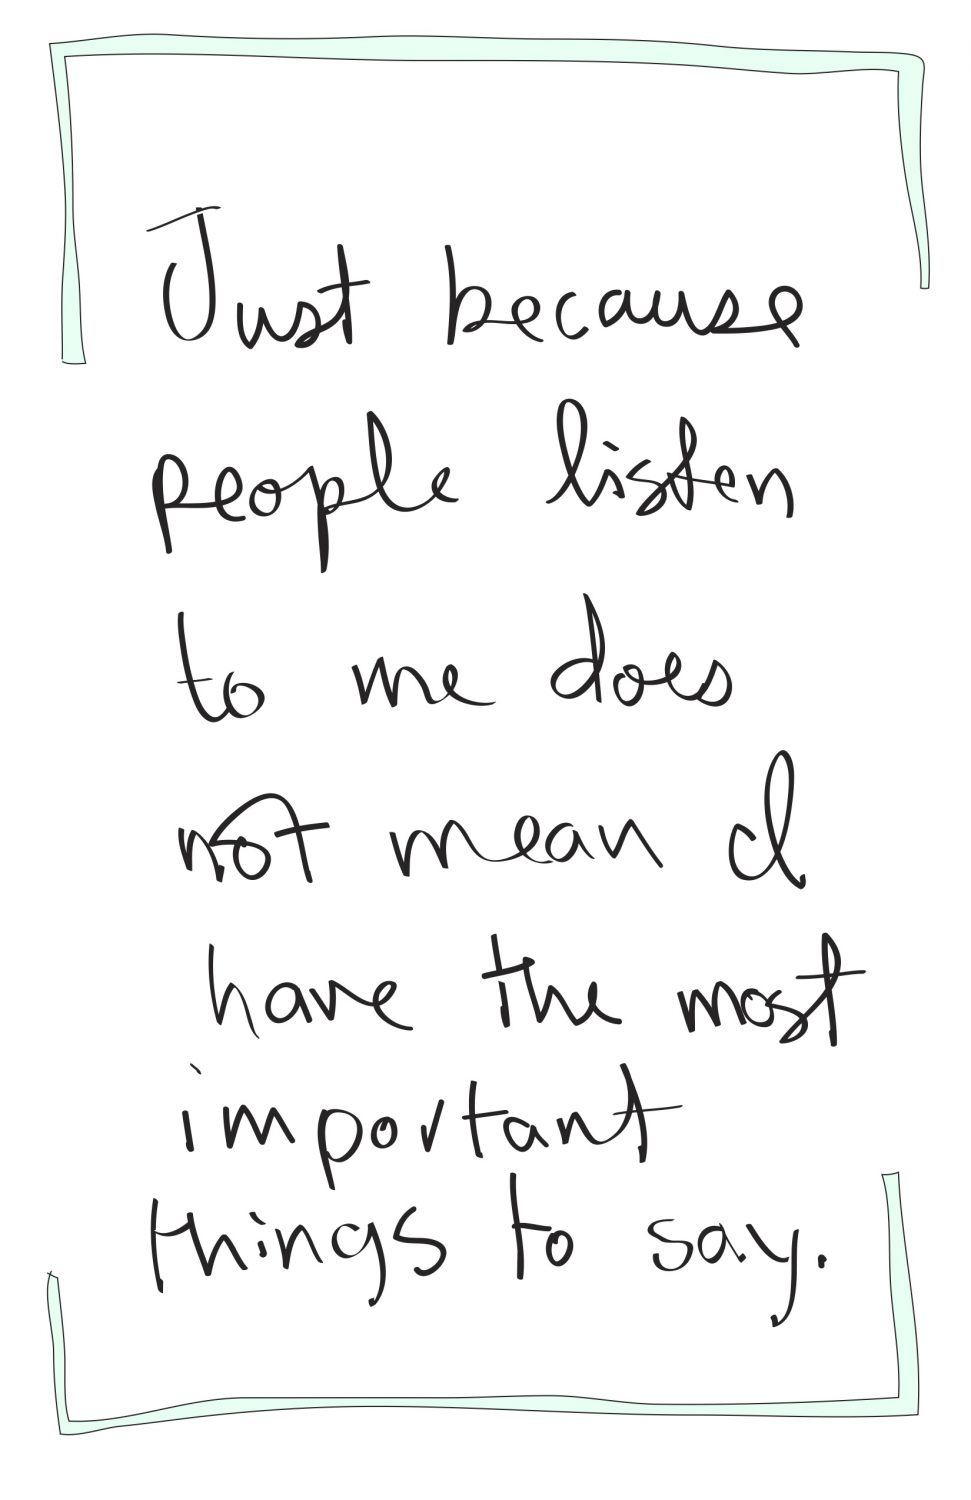 Just because
people listen
to me does
not mean I
have the most
important
things to say.